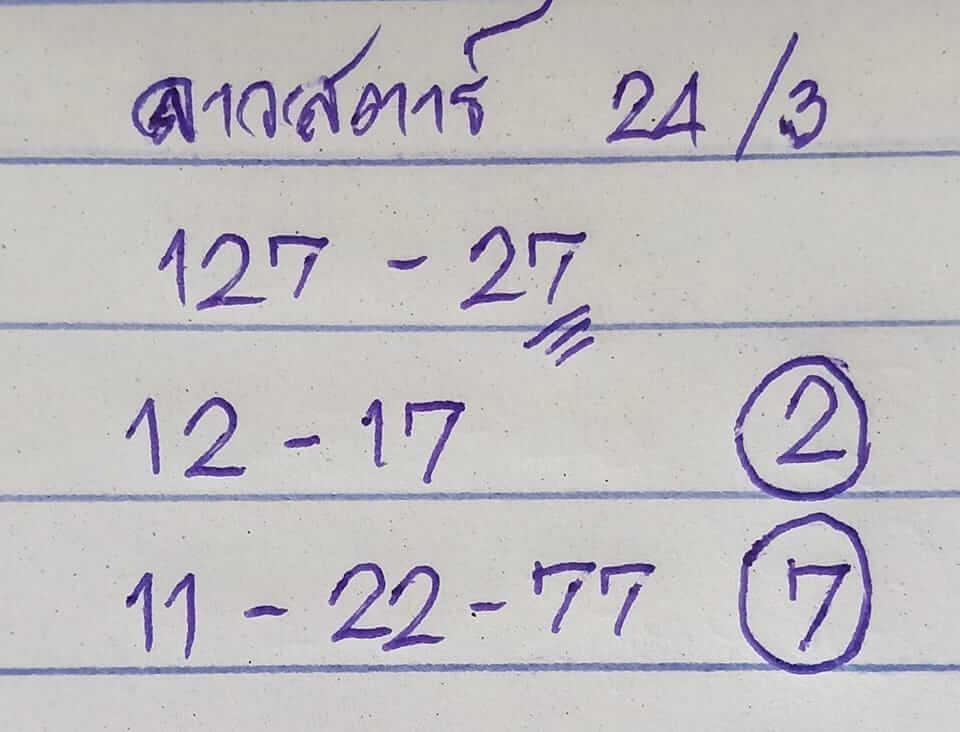 ลาวสตาร์ 24/3
127 - 27
12 - 17 2
11 - 22 - 77 7